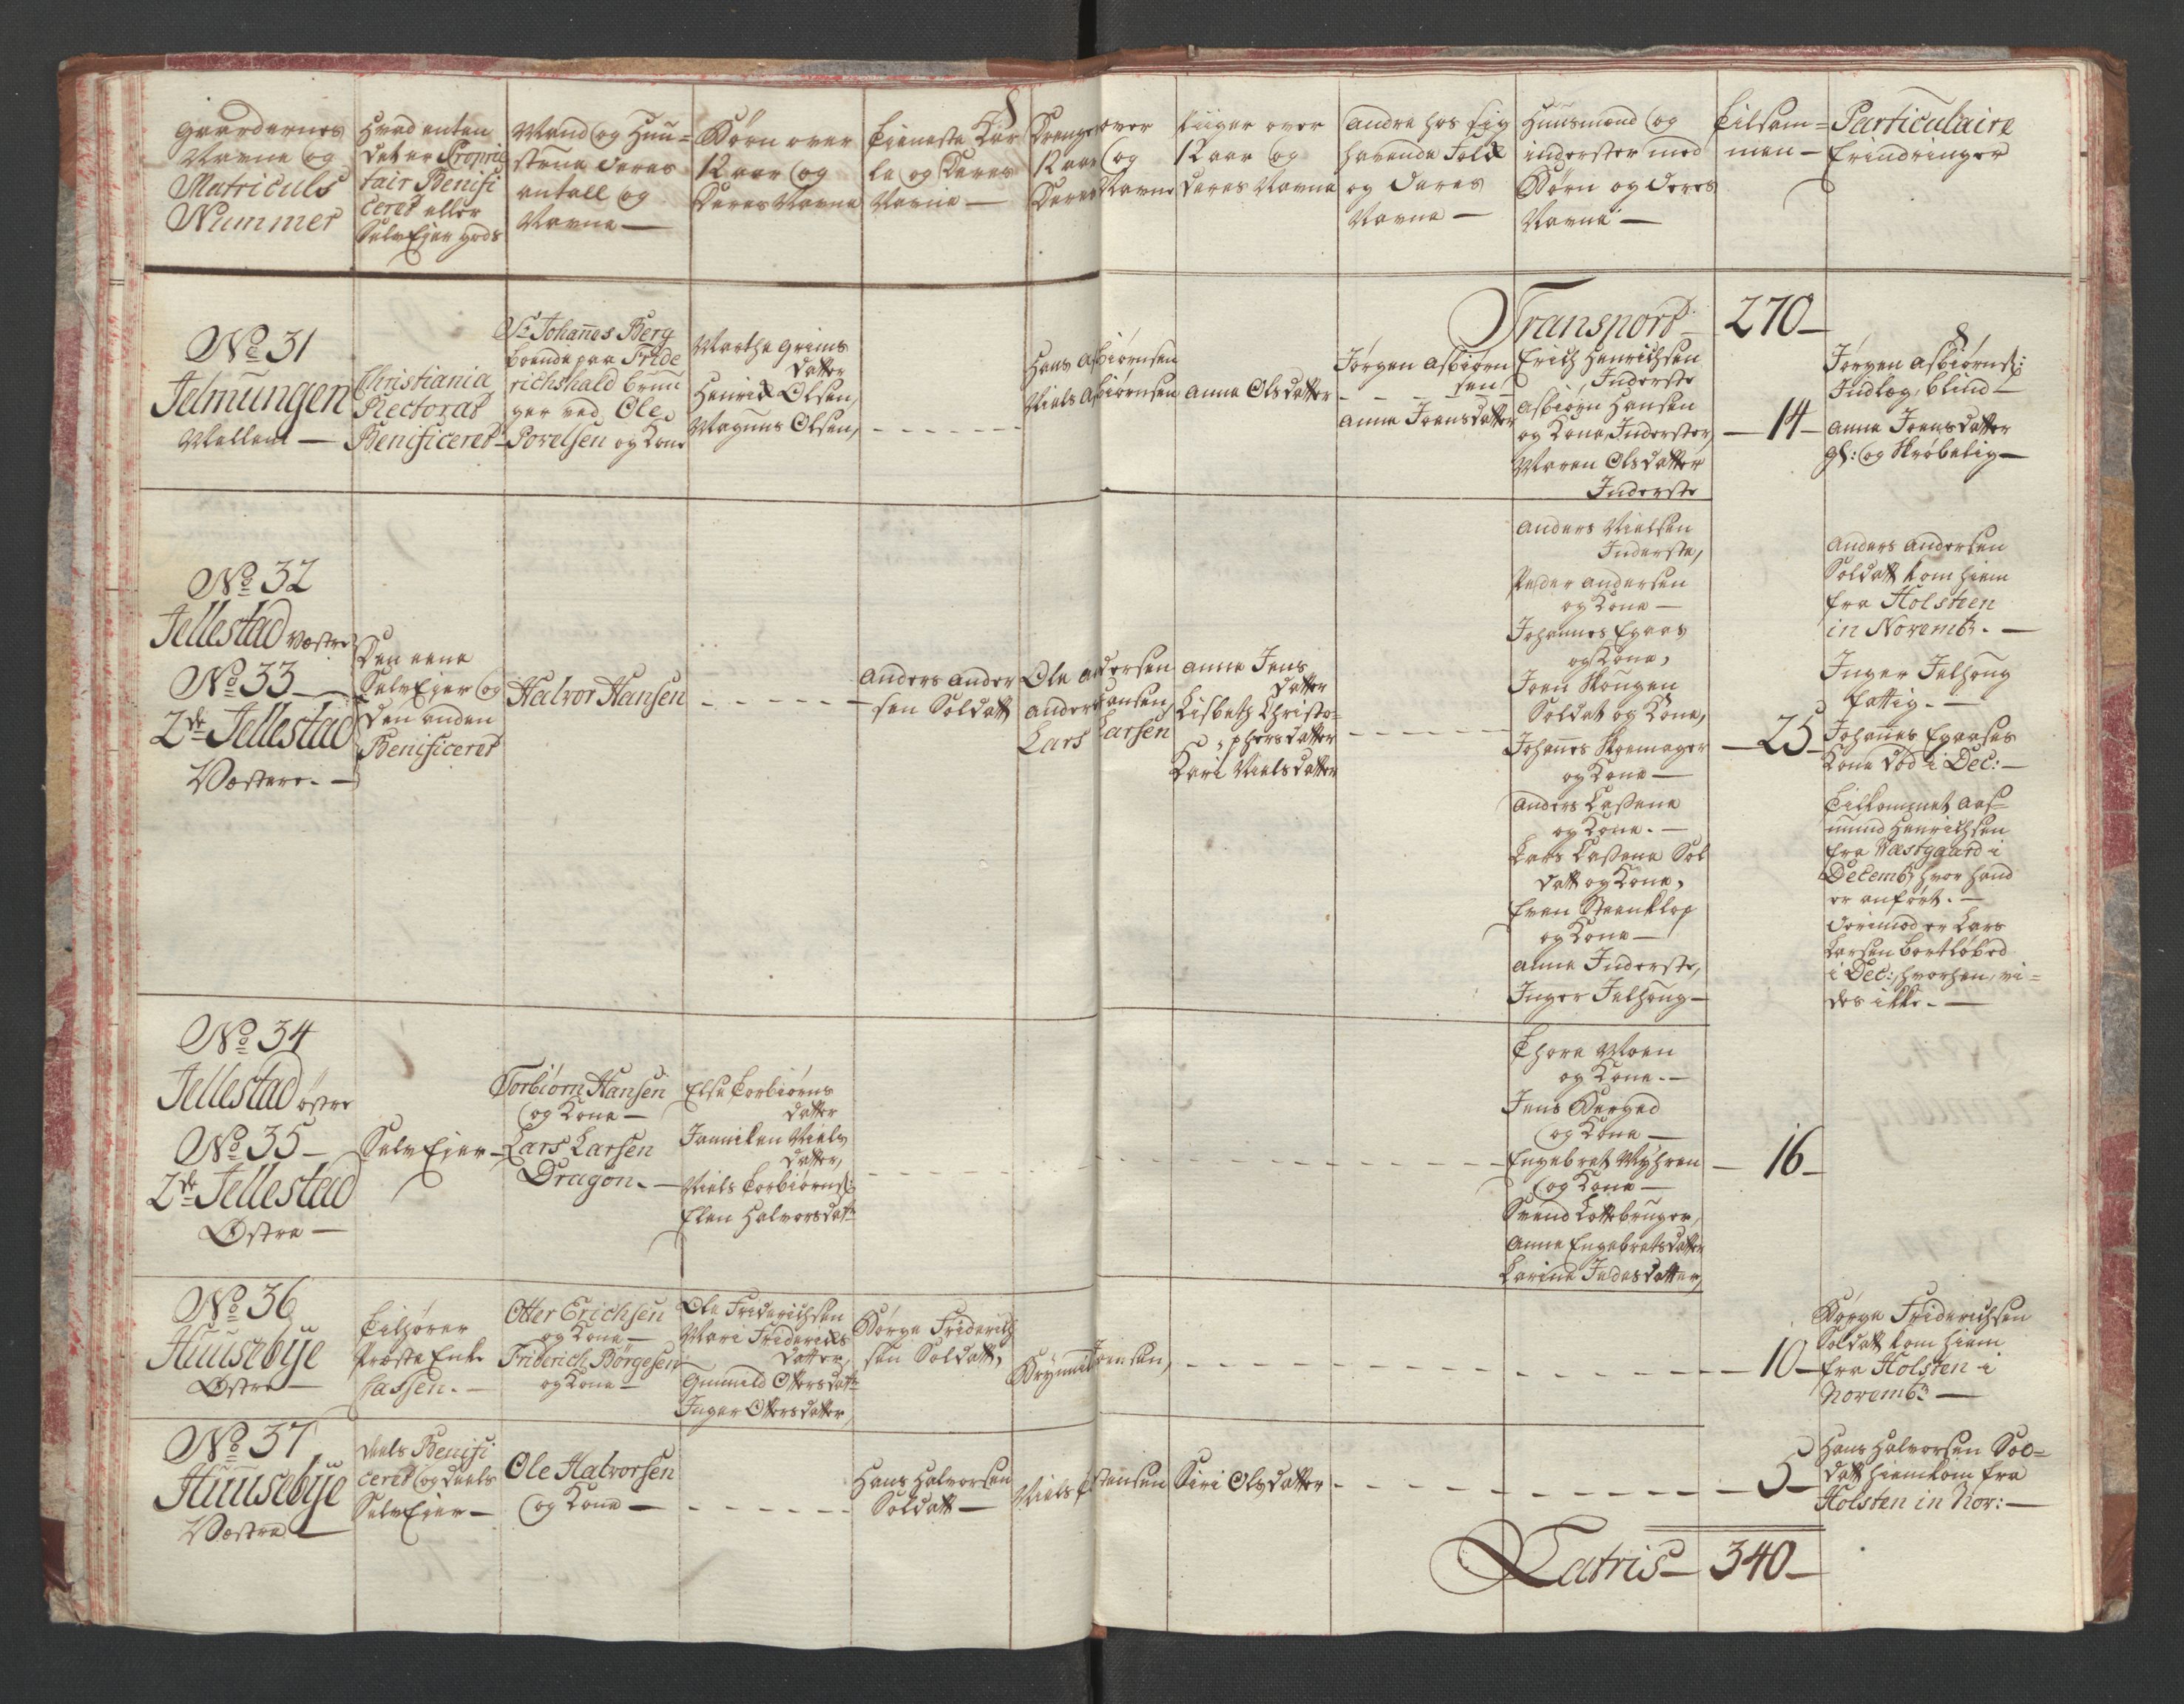 Gaardernes
Navne og
Matriculs
Nummer
Hvad enten
det er Proprie
tair Benifi
ceret eller
SelvEjer gods
Mand og Huu-
strue deres
antall og
Navne —
Børn over
12 aar og
Deres Navne
Tieneste Kar
le og Deres
Navne —
Drenge over
12 aar og
Deres Navne
Piiger over
12 aar og
deres Navne
Andre hos sig
havende Folk
og deres
Navne —
Huusmænd og
inderster med
Børn og deres
Navne —
Tilsam-
men —
Particulaire
Erindringer
Transport — 270 —
No 31
Jelmungen
Mellem —
Christiania
Rectorat
Benificeret —
Sr. Johañes Berg
boende paa Fride
richshald brug
ger ved Ole
Povelsen og Kone
Marthe Grims
datter
Henrik Olsen,
Magnus Olsen,
Hans Asbiørnsen
Niels Asbiørnsen
Anne Olsdatter
Jørgen Asbiørn
sen
Anne Joensdatter
Erich Henrichsen
Inderste
Asbiørn Hansen
og Kone, Inderster,
Maren Olsdatter
Inderste
— 14 —
Jørgen Asbiørns:
Indlæg, blind —
Anne Joensdatter
gl: og skrøbelig —
No 32
Jellestad Væstre
No 33 —
2de Jellestad
Væstere. —
Den eene
SelvEjer og
den anden
Benificeret
Halvor Hansen
Anders Ander
sen Soldatt
Ole Andersen
Anders Hansen,
Lars Larsen
Anne Jens
datter
Lisbeth Christo-
phersdatter
Kari Nielsdatter
Anders Nielsen
Inderste,
Peder Andersen
og Kone —
Johannes Egaas
og Kone,
Joen Skougen
Soldat og Kone,
Johannes Skoemager
og Kone —
Anders Lassene
og Kone. —
Lars Lassene Sol
datt og Kone,
Even Steenklop
og Kone —
Anne Inderste,
Inger Jelhoug —
— 25 —
Anders Andersen
Soldatt kom hiem
fra Holsteen
in Novembr. —
Inger Jelhoug
fattig. —
Johañes Egaases
Kone død i Dec: —
Tilkommet Aas-
mund Henrichsen
fra Væstgaard i
Decembr hvor hand
er anført. —
derimod er Lars
Larsen bortløbed
i Dec:, hvorhen, vi-
des ikke. —
No 34
Jellestad østre
No 35 —
2de Jellestad
Østre —
SelvEjer —
Torbiørn Hansen
og Kone —
Lars Larsen
Dragon. —
Else Torbiørns
datter
Janniken Niels
datter,
Niels Torbiørns:
Elen Halvorsdatr
Thore Moen
og Kone. —
Jens Berged
og Kone —
Engebret Myhren
og Kone —
Svend Lottebruger,
Anne Engebretsdatter
Karine Jedesdatter,
— 16 —
No 36
Huusebye
Østre —
Tilhører
Præste Enke
Hassen. —
Otter Erichsen
og Kone —
Friderich Børgesen
og Kone —
Ole Friderichsen
Mari Friderichs
datter,
Gunnild Ottersdatr
Inger Ottersdatter,
Børge Friderich
sen Soldatt,
Brynnild Joensen,
— 10 —
Børge Friderichsen
Soldatt kom hiem
fra Holsten i
Novembr —
No 37
Huusebye
Væstre —
deels Benifi
ceret og deels
SelvEjer —
Ole Halvorsen
og Kone —
Hans Halvorsen
Soldatt —
Niels Estensen
Siri Olsdatter
— 5 —
Hans Halvorsen Sol-
datt hiemkom fra
Holsten in Nov: —
Latris — 340 —